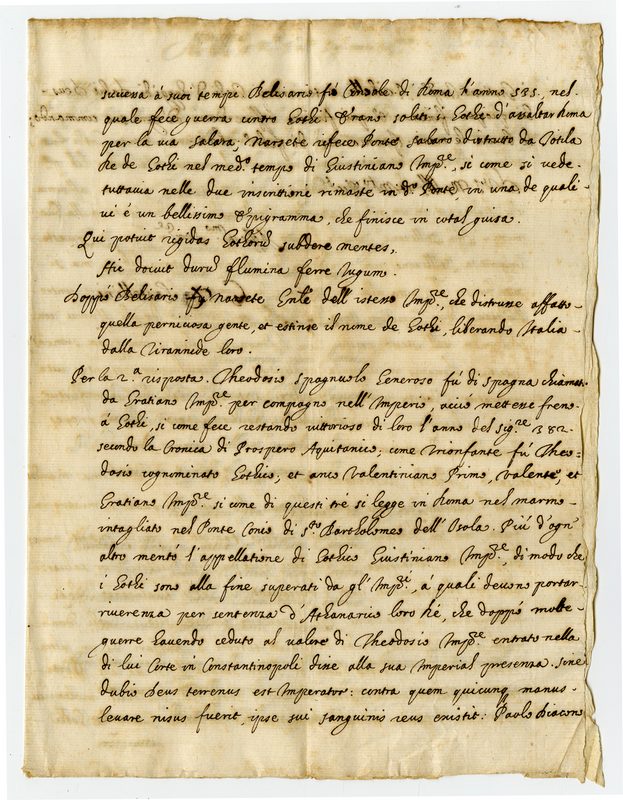 successa à suoi tempi Belisario fù Console di Roma l'anno 535. nel
quale fece guerra contro Gothi. Erano soliti i Gothi d'assaltar Roma
per la via salara, Narsete rifece Ponte salaro distrutto da Totila
Rè de Gothi nel med.º tempo di Giustiniano Imp.re, si come si vede
tuttavia nelle due inscrittioni rimaste in d.º Ponte, in una de quali
vi è un bellissimo Epigramma, che finisce in cotal guisa.
Qui potuit rigidas Gothorū subdere mentes,
Hic docuit durū flumina ferre Iugum.
Doppò Belisario fù Narsete Gnle dell'istesso Imp.re, che distrusse affatto
quella perniciosa gente, et estinse il nome de Gothi, liberando Italia
dalla Tirannide loro.
Per la 2.a risposta. Theodosio spagnuolo Generoso fù di spagna chiamato
da Gratiano Imp.re per compagno nell'Imperio, acciò mettesse freno
à Gothi, si come fece restando vittorioso di loro l'anno del sig.re 382
secondo la Cronica di Prospero Aquitanico, come trionfante fù Theo=
dosio cognominato Gothico, et anco Valentiniano Primo, Valente, et
Gratiano Imp.re si come di questi trè si legge in Roma nel marmo
intagliato nel Ponte Conio di s.to Bartholomeo dell'Isola. Più d'ogn'
altro meritò l'appellatione di Gothico Giustiniano Imp.re, di modo che
i Gothi sono alla fine superati da gl'Imp.ri, à quali devono portar
riverenza per sentenza d'Athanarico loro Rè, che doppò molte
guerre havendo ceduto al valore di Theodosio Imp.re entrato nella
di lui Corte in Constantinopoli disse alla sua Imperial presenza. sine
dubio Deus terrenus est Imperator: contra quem quicunq manus
levare nisus fuerit, ipse sui sanguinis reus existit: Paolo Diacono